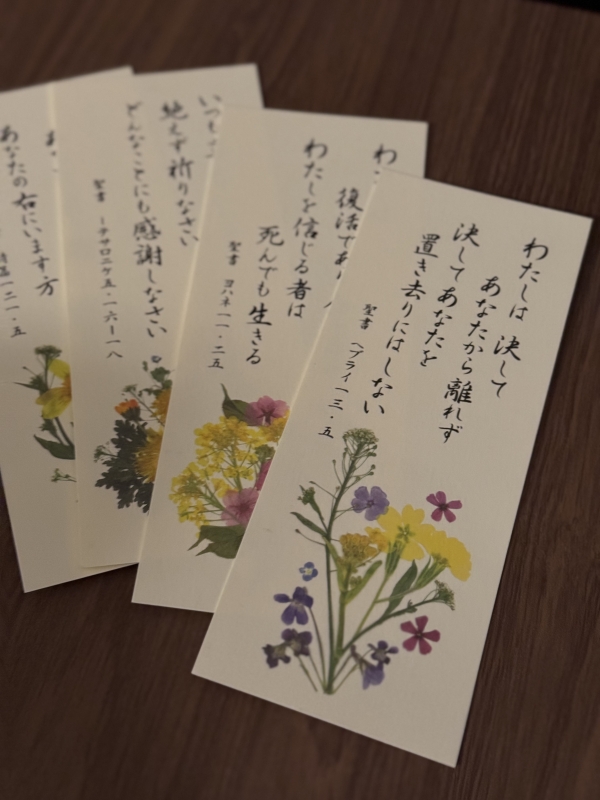 わたしは 決して
あなたから 離れず
決して あなたを
置き去りには しない
聖書 ヘブライ一三・五
わ
復活であり
わたしを信じる者は
死んでも生きる
聖書 ヨハネ一一・二五
いつも
絶えず祈りなさい
どんなことにも感謝しなさい
聖書 一テサロニケ五・一六ー一八
あ
あなたの右にいます方
一二一・五